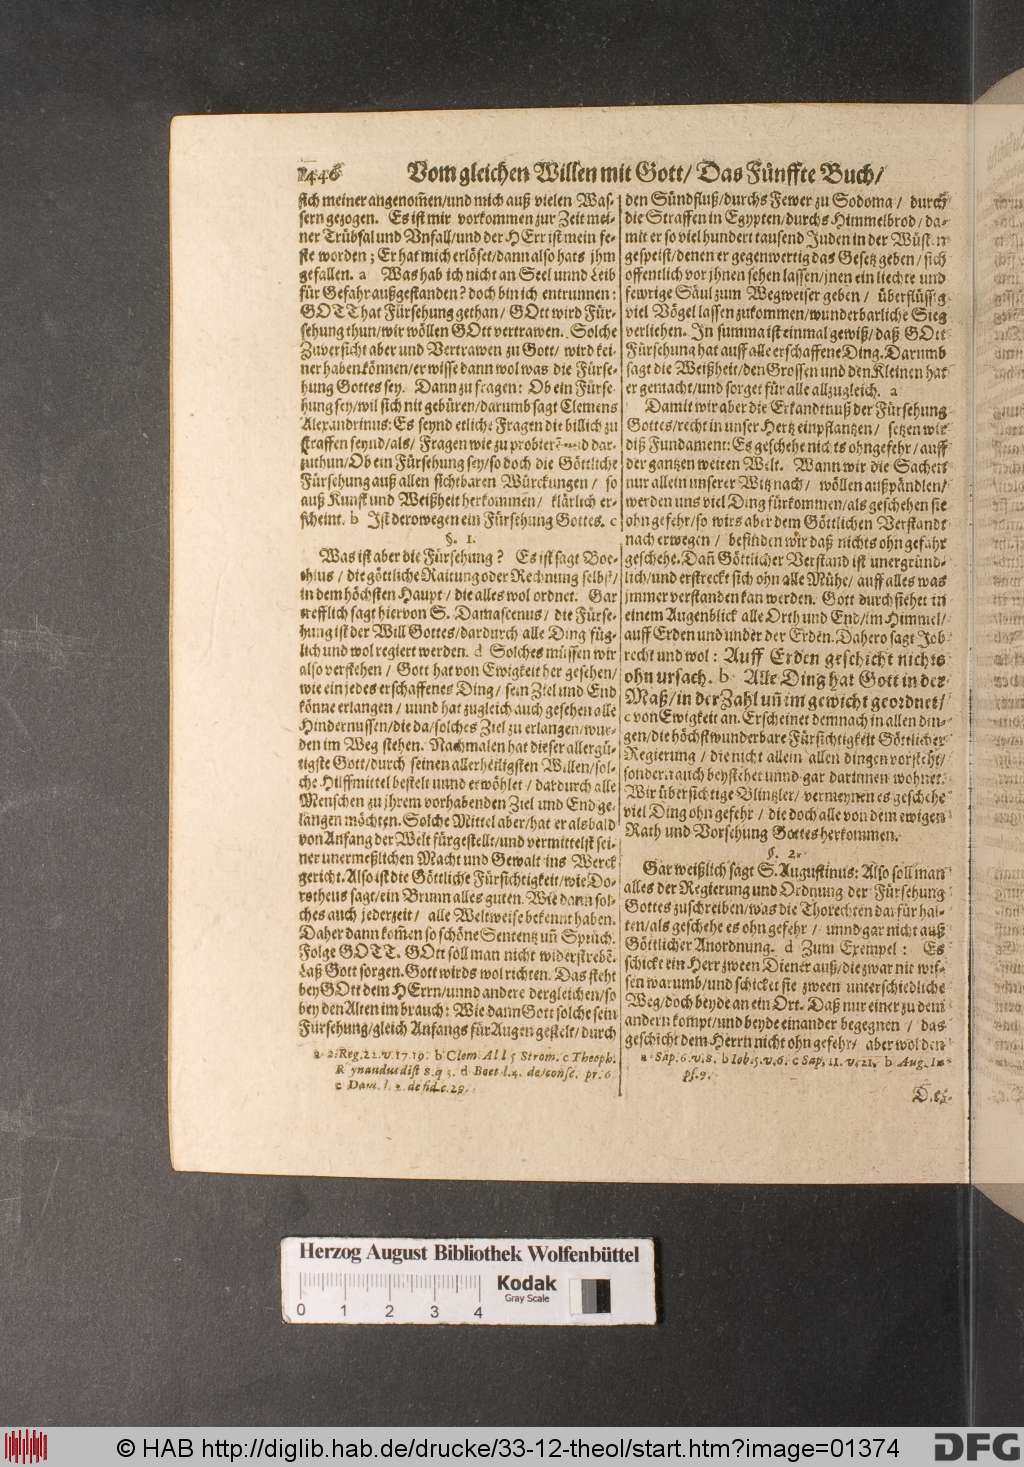 1446 Vom gleichen Willen mit Gott/ Das Fünffte Buch/
sich meiner angenom̃en/und mich auß vielen Was-
sern gezogen. Es ist mir vorkommen zur Zeit mei-
ner Trübsal und Vnfall/und der HErr ist mein fe-
ste worden; Er hat mich erlöset/dann also hats ihm
gefallen. a Was hab ich nicht an Seel unnd Leib
für Gefahr außgestanden? doch bin ich entrunnen:
GOTT hat Fürsehung gethan/ GOtt wird Für-
sehung thun/wir wöllen GOtt vertrawen. Solche
Zuversicht aber und Vertrawen zu Gott/ wird kei-
ner haben können/er wisse dann wol was die Fürse-
hung Gottes sey. Dann zu fragen: Ob ein Fürse-
hung sey/wil sich nit gebüren/darumb sagt Clemens
Alexandrinus: Es seynd etliche Fragen die billich zu
straffen seynd/als/ Fragen wie zu probierẽ und dar-
zuthun/Ob ein Fürsehung sey/so doch die Göttliche
Fürsehung auß allen sichtbaren Würckungen/ so
auß Kunst und Weißheit herkommen/ klärlich er-
scheint. b Ist derowegen ein Fürsehung Gottes. c
§. 1.
Was ist aber die Fürsehung? Es ist sagt Boe-
thius/ die göttliche Raitung oder Rechnung selbst/
in dem höchsten Haupt/ die alles wol ordnet. Gar
trefflich sagt hiervon S. Damascenus/ die Fürse-
hung ist der Will Gottes/dardurch alle Ding füg-
lich und wol regiert werden. d Solches müssen wir
also verstehen/ Gott hat von Ewigkeit her gesehen/
wie ein jedes erschaffenes Ding/ sein Ziel und End
könne erlangen/ unnd hat zugleich auch gesehen alle
Hindernussen/die da/solches Ziel zu erlangen/wur-
den im Weg stehen. Nachmalen hat dieser allergü-
tigste Gott/durch seinen allerheiligsten Willen/sol-
che Hülffmittel bestelt unnd erwöhlet/ dardurch alle
Menschen zu jhrem vorhabenden Ziel und End ge-
langen möchten. Solche Mittel aber/hat er alsbald
von Anfang der Welt fürgestellt/und vermittelst sei-
ner unermeßlichen Macht und Gewalt ins Werck
gericht. Also ist die Göttliche Fürsichtigkeit/wie Do-
rotheus sagt/ein Brunn alles guten. Wie dann sol-
ches auch jederzeit/ alle Weltweise bekennt haben.
Daher dann kom̃en so schöne Sententz uñ Sprüch.
Folge GOTT. GOtt soll man nicht widerstrebẽ.
Laß Gott sorgen. Gott wirds wol richten. Das steht
bey GOtt dem HErrn/unnd andere dergleichen/so
bey den Alten im brauch: Wie dann Gott solche sein
Fürsehung/gleich Anfangs für Augen gestelt/durch
a 2. Reg. 22. v. 17. 19. b Clem. Al l 5 Strom. c Theoph.
Raynandus dist 8. q 3. d Boet l. 4. de conse. pr. 6
e Dam. l. 2. de fid. c. 29.
den Sündfluß/durchs Fewer zu Sodoma/ durch
die Straffen in Egypten/durchs Himmelbrod/ da-
mit er so viel hundert tausend Juden in der Wüsten
gespeist/denen er gegenwertig das Gesetz geben/ sich
offentlich vor jhnen sehen lassen/jnen ein liechte und
fewrige Säul zum Wegweiser geben/ überflüssig
viel Vögel lassen zukommen/wunderbarliche Sieg
verliehen. In summa ist einmal gewiß/daß GOtt
Fürsehung hat auff alle erschaffene Ding. Darumb
sagt die Weißheit/den Grossen und den Kleinen hat
er gemacht/und sorget für alle allzugleich. a
Damit wir aber die Erkandtnuß der Fürsehung
Gottes/recht in unser Hertz einpflantzen/ setzen wir
diß Fundament: Es geschehe nichts ohngefehr/ auff
der gantzen weiten Welt. Wann wir die Sachen
nur allein unserer Witz nach/ wöllen außpändlen/
werden uns viel Ding fürkommen/als geschehen sie
ohn gefehr/so wirs aber dem Göttlichen Verstandt
nach erwegen/ befinden wir daß nichts ohn gefähr
geschehe. Dañ Göttlicher Verstand ist unergründ-
lich/und erstreckt sich ohn alle Mühe/ auff alles was
jmmer verstanden kan werden. Gott durchsiehet in
einem Augenblick alle Orth und End/im Himmel/
auff Erden und under der Erden. Dahero sagt Job
recht und wol: Auff Erden geschicht nichts
ohn ursach. b Alle Ding hat Gott in der
Maß/in der Zahl uñ im gewicht geordnet/
c von Ewigkeit an. Erscheinet demnach in allen din-
gen/die höchst wunderbare Fürsichtigkeit Göttlicher
Regierung/ die nicht allein allen dingen vorsteht/
sondern auch beystehet unnd gar darinnen wohnet.
Wir übersichtige Blintzler/ vermeynen es geschehe
viel Ding ohn gefehr/ die doch alle von dem ewigen
Rath und Vorsehung Gottes herkommen.
§. 2.
Gar weißlich sagt S. Augustinus: Also soll man
alles der Regierung und Ordnung der Fürsehung
Gottes zuschreiben/was die Thorechten darfür hal-
ten/als geschehe es ohn gefehr/ unnd gar nicht auß
Göttlicher Anordnung. d Zum Exempel: Es
schickt ein Herr zween Diener auß/die zwar nit wis-
sen warumb/und schicket sie zween unterschiedliche
Weg/doch beyde an ein Ort. Daß nur einer zu dem
andern kompt/und beyde einander begegnen/ das
geschicht dem Herrn nicht ohn gefehr/ aber wol den
a Sap. 6. v. 8. b Iob. 5. v. 6. c Sap. 11. v. 21. b Aug. In
ps. 9.
Herzog August Bibliothek Wolfenbüttel
0 1 2 3 4
Kodak
Gray Scale
© HAB http://diglib.hab.de/drucke/33-12-theol/start.htm?image=01374
DFG